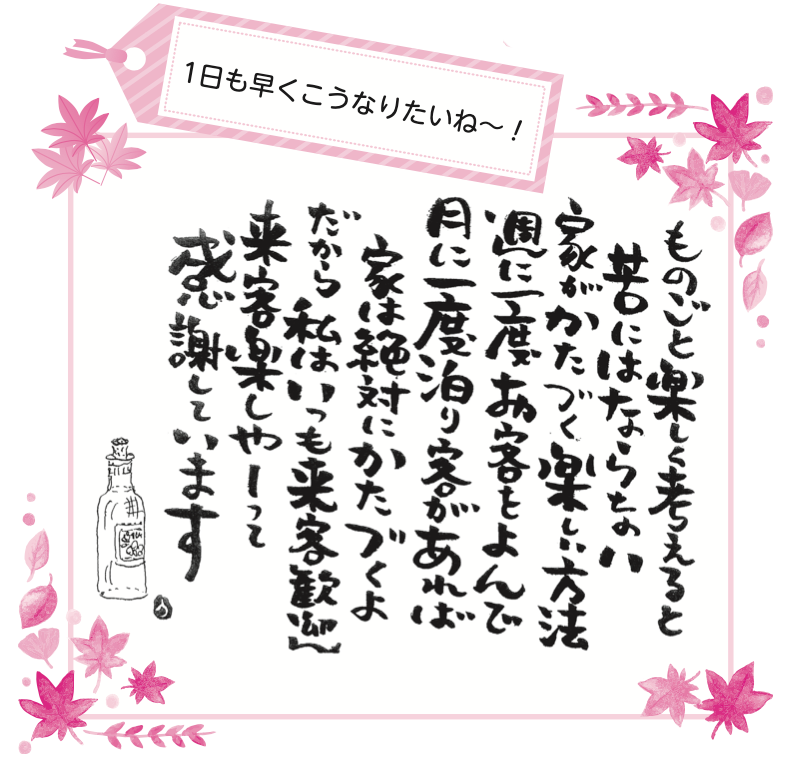 1日も早くこうなりたいね～！
ものごと楽しく考えると
苦にはならない
家がかたづく楽しい方法
週に一度お客をよんで
月に一度泊り客があれば
家は絶対にかたづくよ
だから
私はいつも来客歓迎
来客楽しやーって
感謝しています